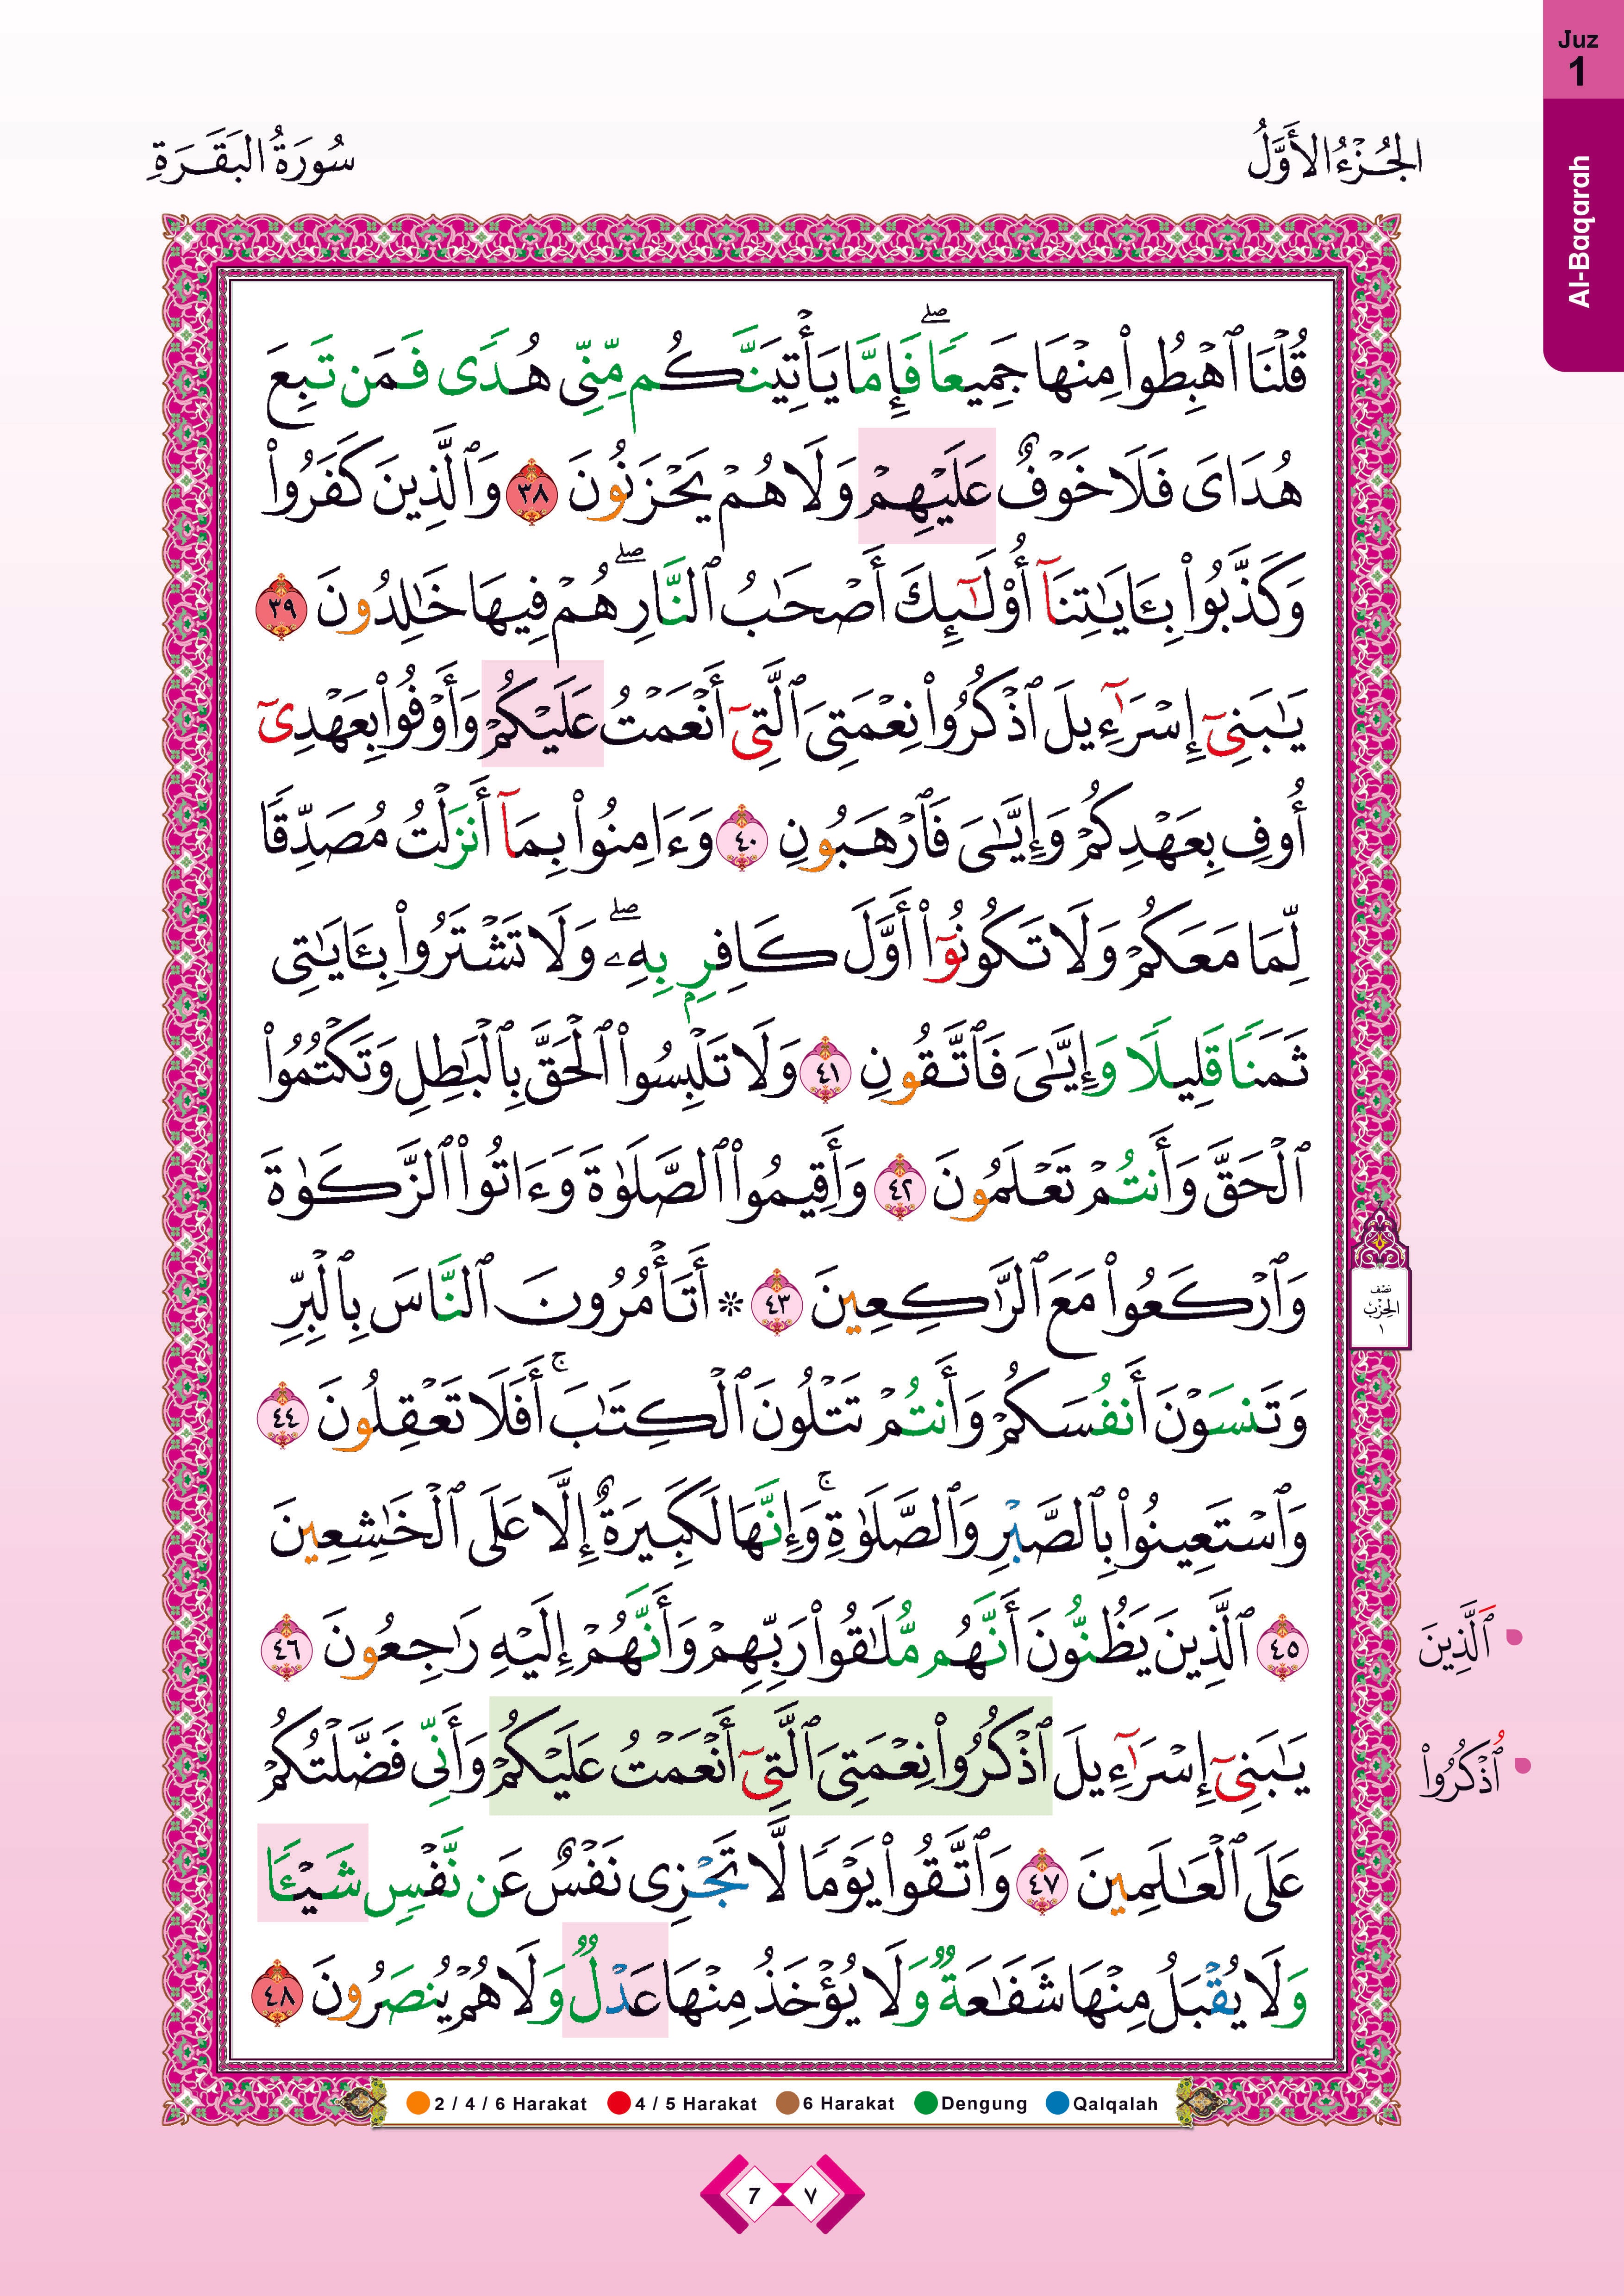 Juz
1
Al-Baqarah
الجُزْءُ الأَوَّلُ
سُورَةُ البَقَرَةِ
قُلْنَا ٱهْبِطُوا۟ مِنْهَا جَمِيعًا ۖ فَإِمَّا يَأْتِيَنَّكُم مِّنِّى هُدًى فَمَن تَبِعَ
هُدَاىَ فَلَا خَوْفٌ عَلَيْهِمْ وَلَا هُمْ يَحْزَنُونَ ٣٨ وَٱلَّذِينَ كَفَرُوا۟
وَكَذَّبُوا۟ بِـَٔايَـٰتِنَآ أُو۟لَـٰٓئِكَ أَصْحَـٰبُ ٱلنَّارِ ۖ هُمْ فِيهَا خَـٰلِدُونَ ٣٩
يَـٰبَنِىٓ إِسْرَٰٓءِيلَ ٱذْكُرُوا۟ نِعْمَتِىَ ٱلَّتِىٓ أَنْعَمْتُ عَلَيْكُمْ وَأَوْفُوا۟ بِعَهْدِىٓ
أُوفِ بِعَهْدِكُمْ وَإِيَّـٰىَ فَٱرْهَبُونِ ٤٠ وَءَامِنُوا۟ بِمَآ أَنزَلْتُ مُصَدِّقًا
لِّمَا مَعَكُمْ وَلَا تَكُونُوٓا۟ أَوَّلَ كَافِرٍۭ بِهِۦ ۖ وَلَا تَشْتَرُوا۟ بِـَٔايَـٰتِى
ثَمَنًا قَلِيلًا وَإِيَّـٰىَ فَٱتَّقُونِ ٤١ وَلَا تَلْبِسُوا۟ ٱلْحَقَّ بِٱلْبَـٰطِلِ وَتَكْتُمُوا۟
ٱلْحَقَّ وَأَنتُمْ تَعْلَمُونَ ٤٢ وَأَقِيمُوا۟ ٱلصَّلَوٰةَ وَءَاتُوا۟ ٱلزَّكَوٰةَ
وَٱرْكَعُوا۟ مَعَ ٱلرَّٰكِعِينَ ٤٣ ۞ أَتَأْمُرُونَ ٱلنَّاسَ بِٱلْبِرِّ
نصْف
الحِزْب
١
وَتَنسَوْنَ أَنفُسَكُمْ وَأَنتُمْ تَتْلُونَ ٱلْكِتَـٰبَ ۚ أَفَلَا تَعْقِلُونَ ٤٤
وَٱسْتَعِينُوا۟ بِٱلصَّبْرِ وَٱلصَّلَوٰةِ ۚ وَإِنَّهَا لَكَبِيرَةٌ إِلَّا عَلَى ٱلْخَـٰشِعِينَ
٤٥ ٱلَّذِينَ يَظُنُّونَ أَنَّهُم مُّلَـٰقُوا۟ رَبِّهِمْ وَأَنَّهُمْ إِلَيْهِ رَٰجِعُونَ ٤٦
اَلَّذِينَ
يَـٰبَنِىٓ إِسْرَٰٓءِيلَ ٱذْكُرُوا۟ نِعْمَتِىَ ٱلَّتِىٓ أَنْعَمْتُ عَلَيْكُمْ وَأَنِّى فَضَّلْتُكُمْ
اُذْكُرُوا۟
عَلَى ٱلْعَـٰلَمِينَ ٤٧ وَٱتَّقُوا۟ يَوْمًا لَّا تَجْزِى نَفْسٌ عَن نَّفْسٍ شَيْـًٔا
وَلَا يُقْبَلُ مِنْهَا شَفَـٰعَةٌ وَلَا يُؤْخَذُ مِنْهَا عَدْلٌ وَلَا هُمْ يُنصَرُونَ ٤٨
2 / 4 / 6 Harakat 4 / 5 Harakat 6 Harakat Dengung Qalqalah
7 ٧